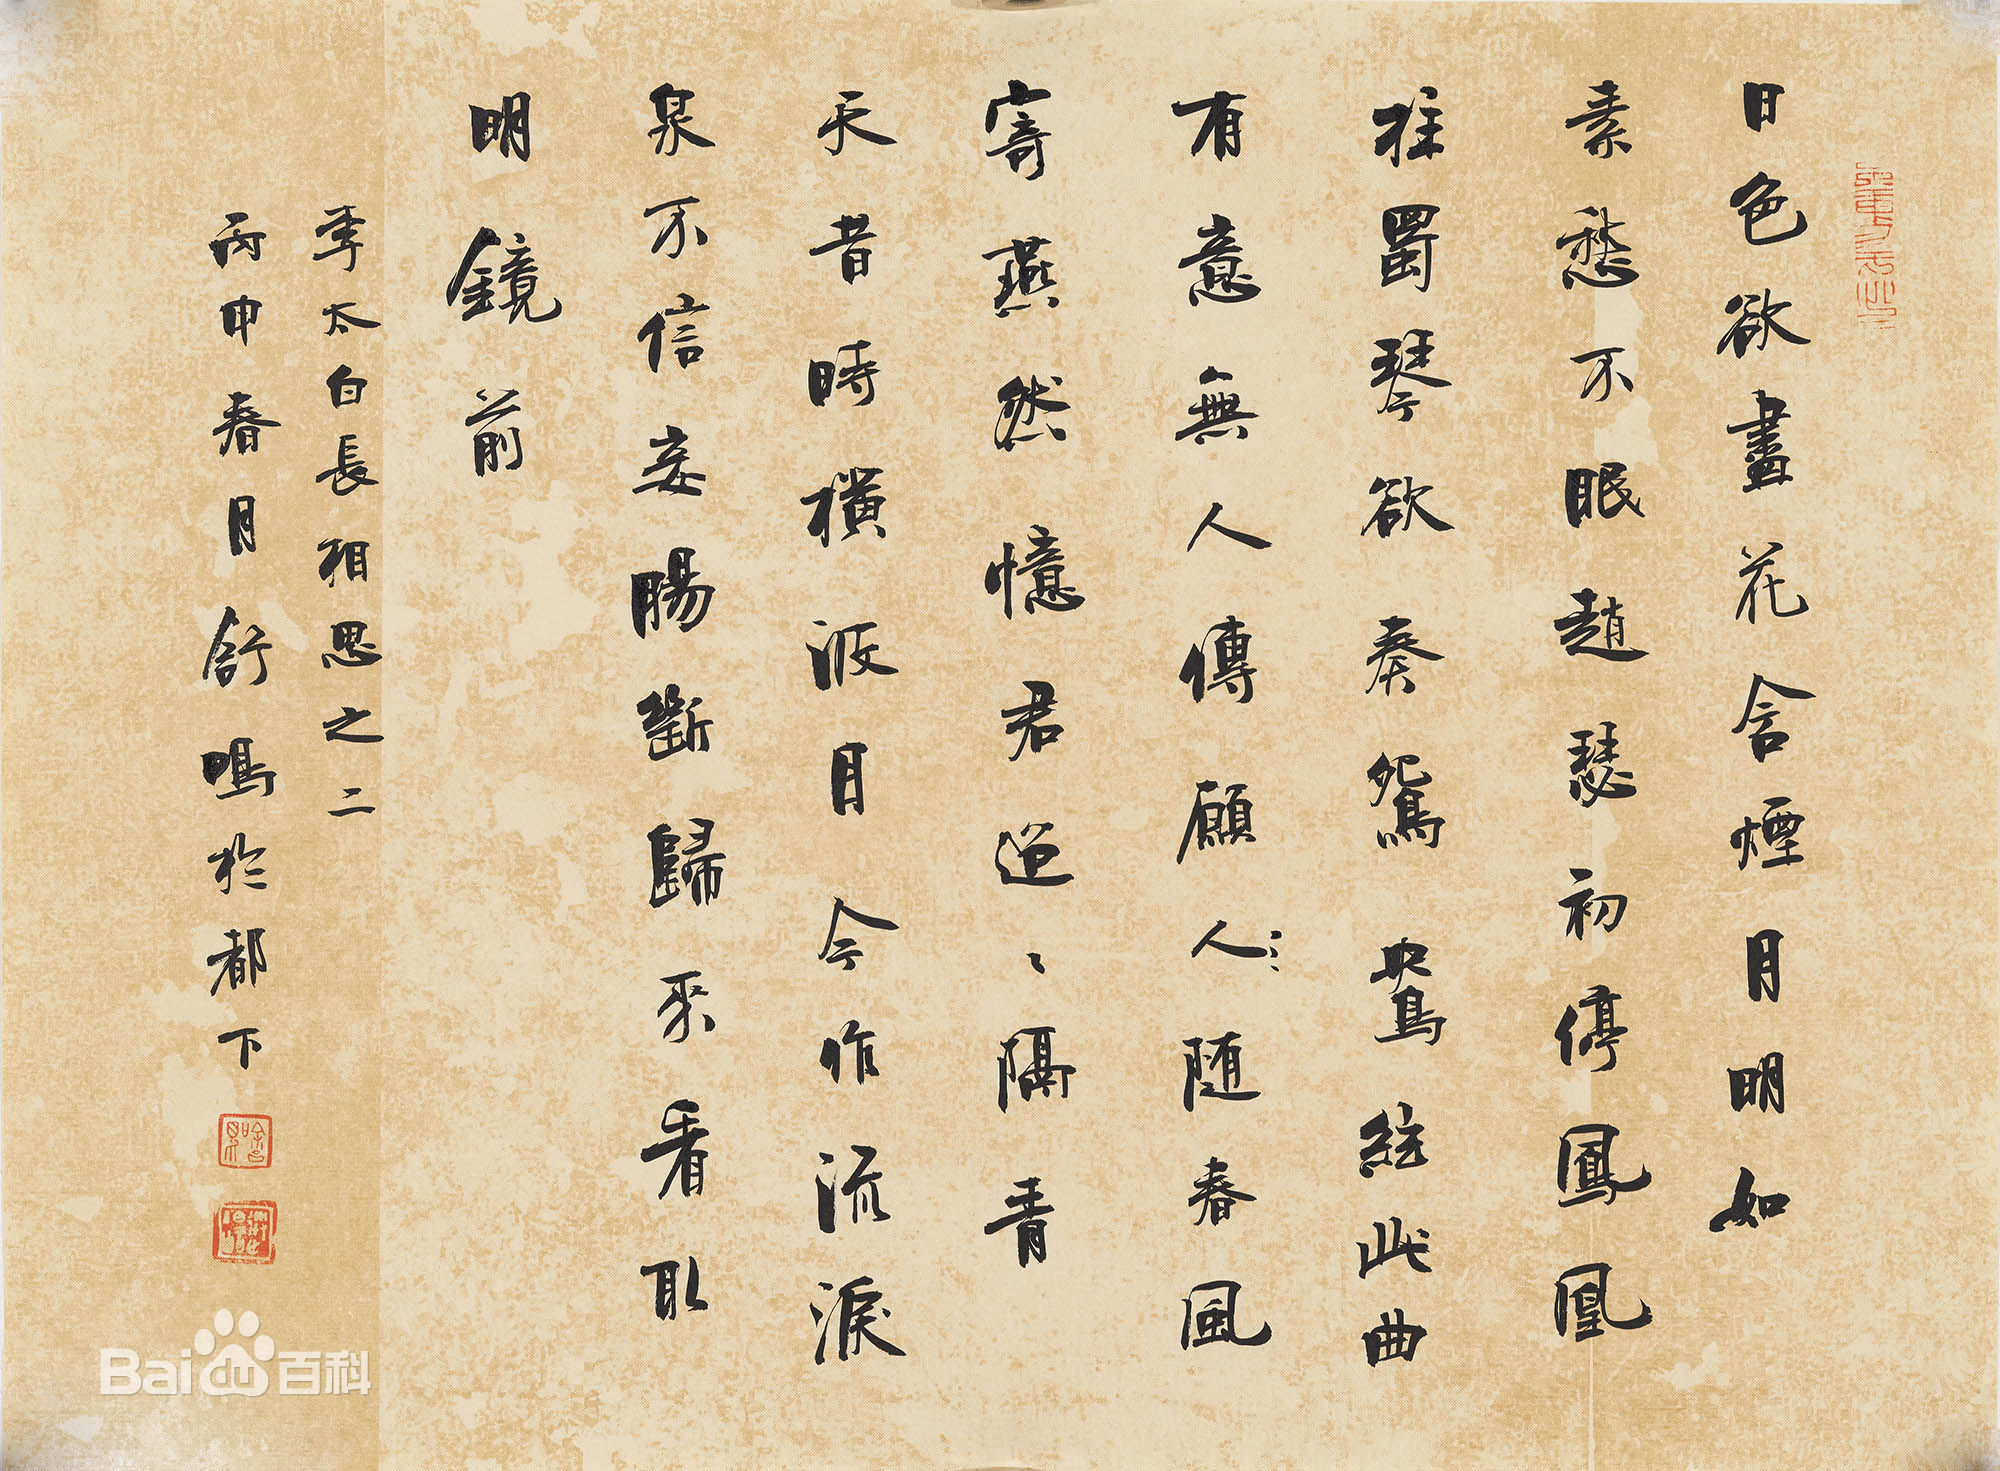 日色欲盡花含煙月明如
素愁不眠趙瑟初停鳳凰
柱蜀琴欲奏鴛鴦絃此曲
有意無人傳願人随春風
寄燕然憶君迢〻隔青
天昔時橫波目今作流淚
泉不信妾腸斷歸來看取
明鏡前
李太白長相思之二
丙申春月舒鳴於都下
Bai百科